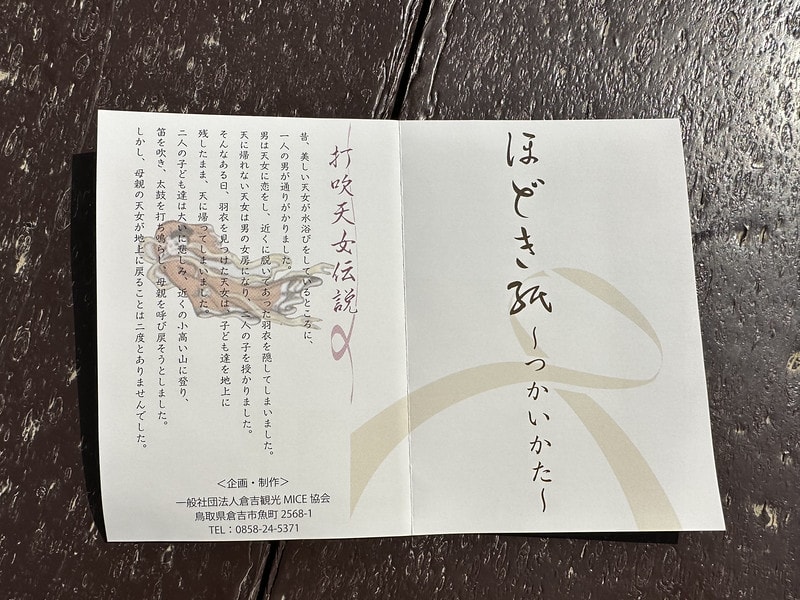 ほどき紙
〜つかいかた〜
打吹天女伝説
昔、美しい天女が水浴びをしているところに、
一人の男が通りがかりました。
男は天女に恋をし、近くに脱いであった羽衣を隠してしまいました。
天に帰れない天女は男の女房になり、二人の子を授かりました。
そんなある日、羽衣を見つけた天女は、子ども達を地上に
残したまま、天に帰ってしまいました。
二人の子ども達は大いに悲しみ、近くの小高い山に登り、
笛を吹き、太鼓を打ち鳴らし、母親を呼び戻そうとしました。
しかし、母親の天女が地上に戻ることは二度とありませんでした。
＜企画・制作＞
一般社団法人倉吉観光MICE協会
鳥取県倉吉市魚町2568-1
TEL：0858-24-5371